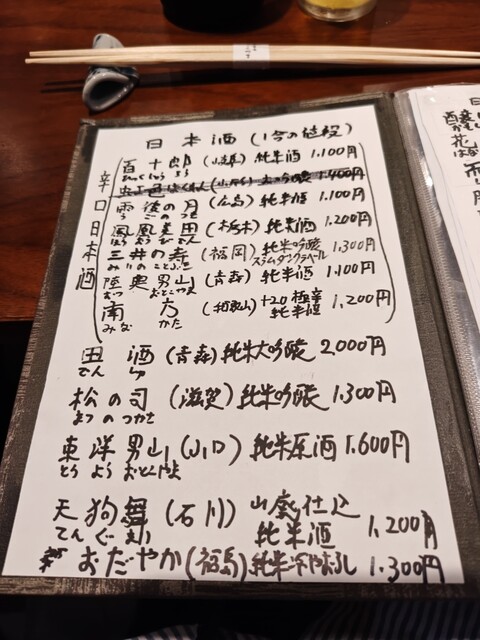 日本酒 (1合の値段)
辛口日本酒
百十郎 (岐阜) 純米酒 1.100円
ひゃくじゅうろう
雨後の月 (広島) 純米酒 1.100円
うごのつき
鳳凰美田 (栃木) 純米酒 1.200円
ほうおうびでん
三井の寿 (福岡) 純米吟醸 1.300円
みいのことぶき スラムダンクラベル
陸奥男山 (青森) 純米酒 1.100円
むつおとこやま
南方 (和歌山) +20極辛 純米酒 1,200円
みなかた
田酒 (青森) 純米大吟醸 2000円
でんしゅ
松の司 (滋賀) 純米吟醸 1.300円
まつのつかさ
東洋男山 (山口) 純米原酒 1.600円
とうようおとこやま
天狗舞 (石川) 山廃仕込 純米酒 1,200円
てんぐまい
おだやか (福島) 純米冷やおろし 1.300円
花